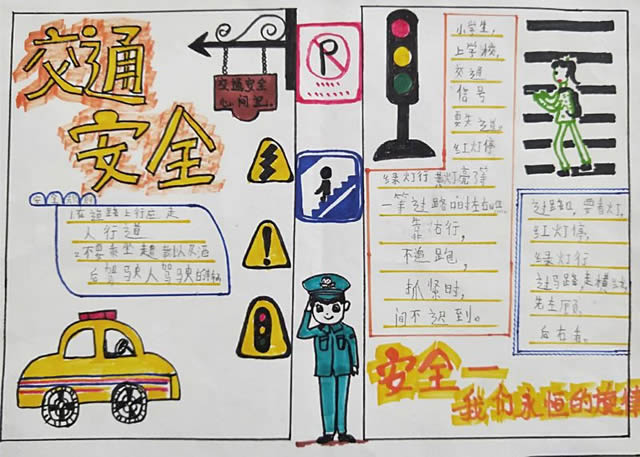 交通
安全
交通安全
心间记
P
安全
1.在道路上行应走
人行道
2.不要乘坐超载以及酒
后驾驶人驾驶的车辆
小学生，
上学校，
交通
信号
要失道。
红灯停
绿灯行 黄灯亮了等
一等过路口
靠右行，
不追跑，
抓紧时，
间不迟到。
过路口，要看灯，
红灯停，
绿灯行
过马路走横
先左顾，
后右看。
安全一
我们永恒的旋律